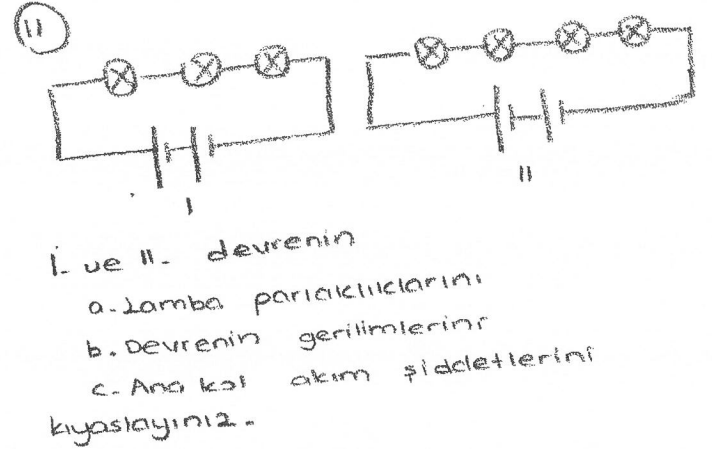 11
I
II
I- ve II- devrenin
a. Lamba parlaklıklarını
b. Devrenin gerilimlerini
c. Ana kol akım şiddetlerini
kıyaslayınız.